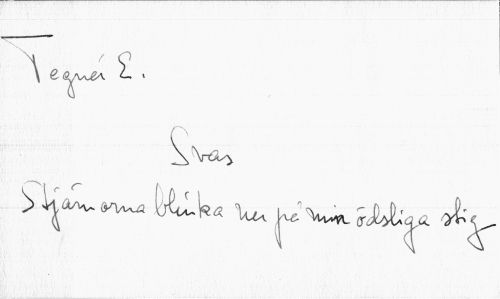 Tegnér E.
Svar
Stjärnorna blinka ner på min ödsliga stig